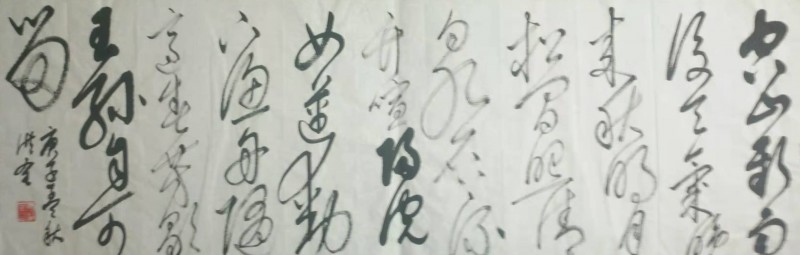 空山新雨
後天氣晚
来秋明月
松间照清
泉石上流
竹喧归浣
女莲動
下渔舟随
意春芳歇
王孫自可
留
庚子孟秋